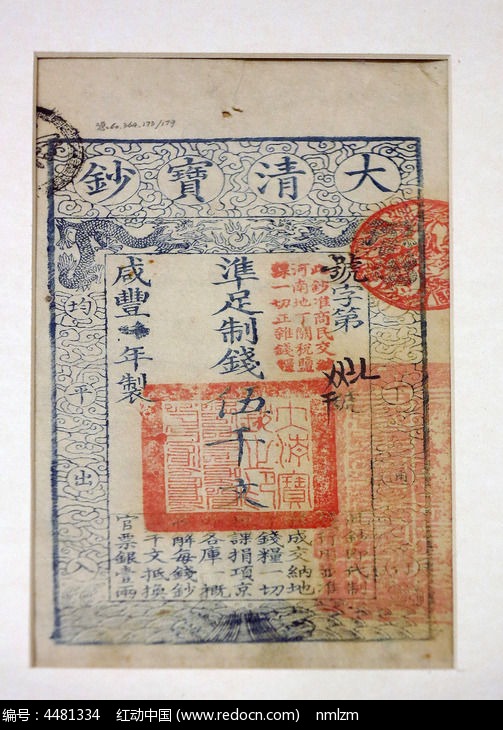 大清寶鈔
號字第
號
此鈔准商民交納
河南地丁關稅鹽
課一切正雜錢糧
準足制錢伍千文
咸豐年製
均平出入
通行
此鈔即代制
行用並准
成交納地
錢糧一切
課捐項京
各庫概
解每錢鈔
千文抵換
官票銀壹兩
大清寶
编号：4481334 红动中国 (www.redocn.com) nmlzm